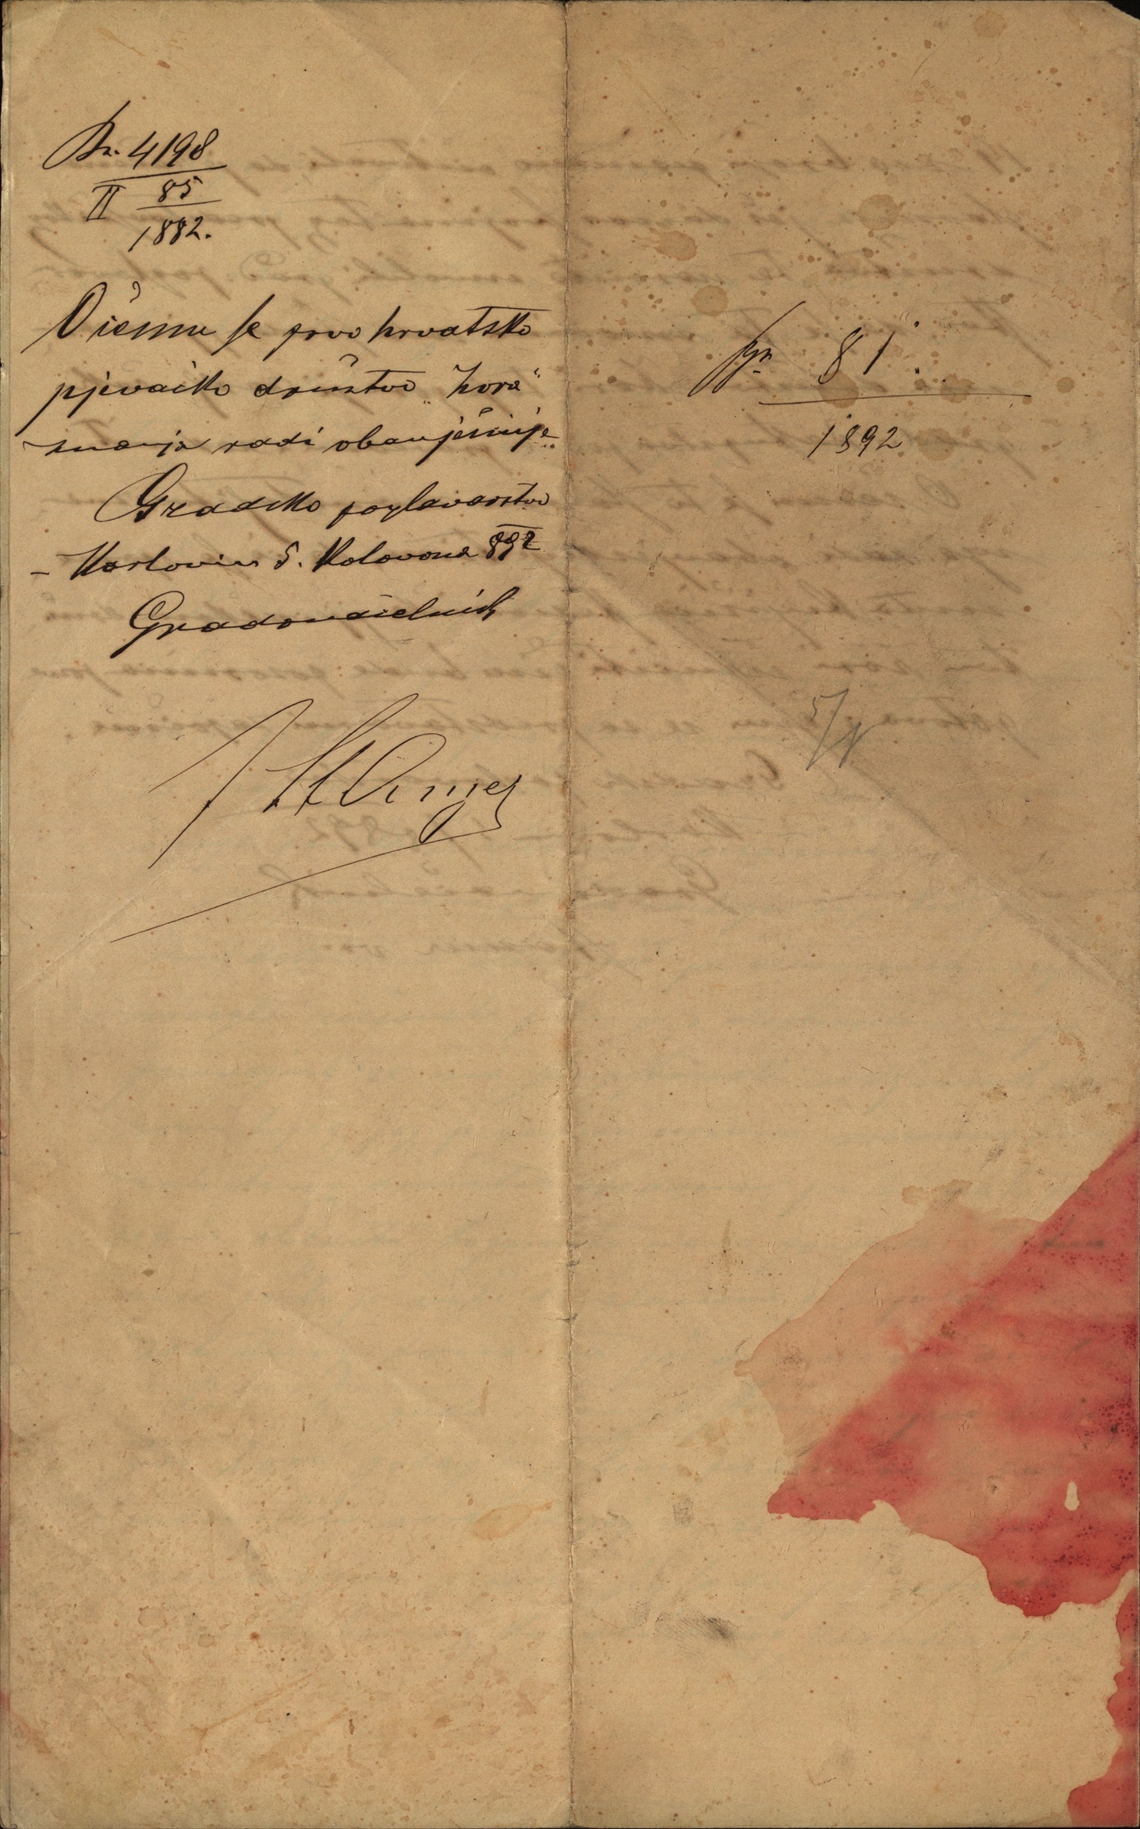 Br. 4198
II 85
1882.
O čemu se prvo hrvatsko
pjevačko družtvo „Zora"
znanja radi obavješćuje.
Gradsko poglavarstvo
Karlovcu 5. Kolovoza 892
Gradonačelnik
Br. 81.
1892
5/